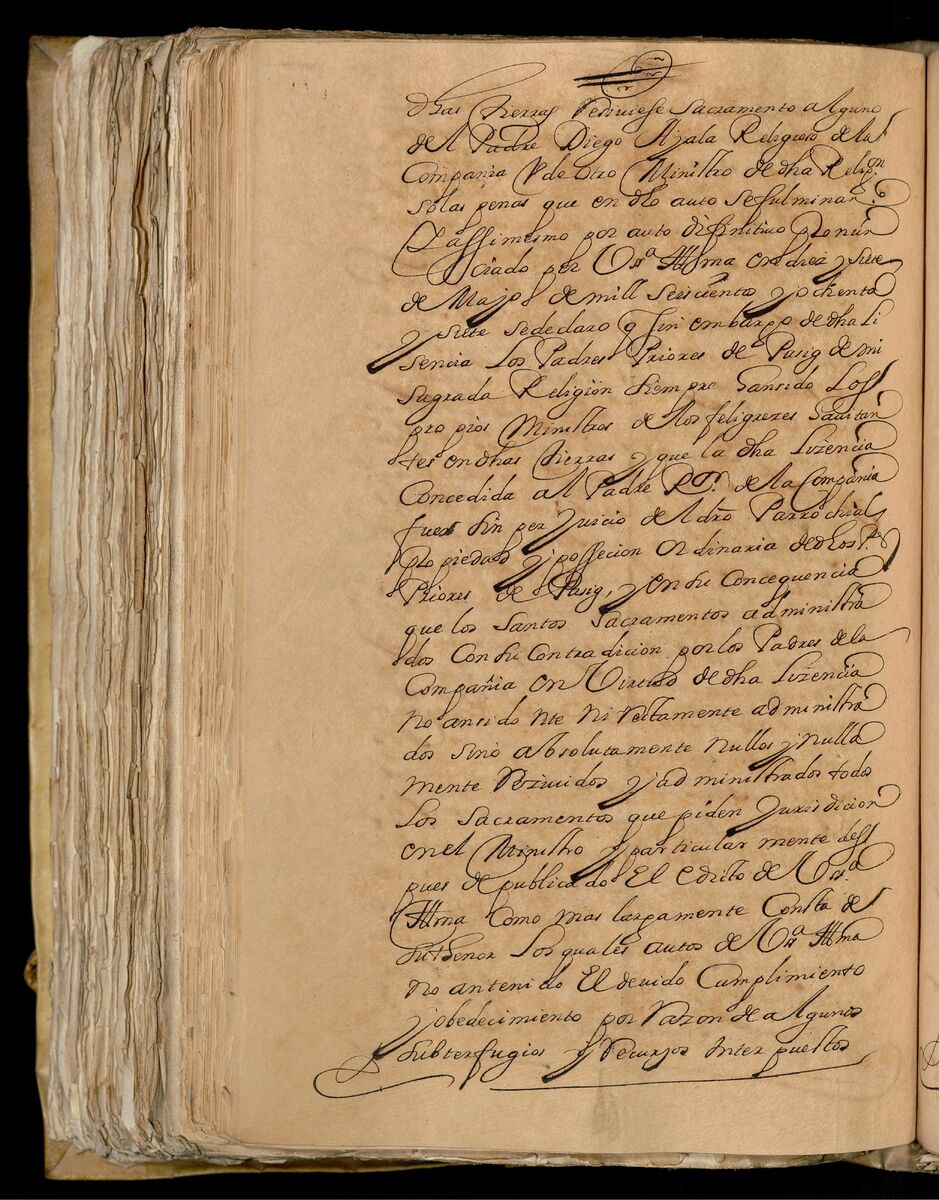 dhas tierras Resiviese Sacramento alguno
del Padre Diego Ajala Religioso de la
Compania V de otro Ministro de dha Relig.on
so las penas que en dho auto se fulminan.
Y assimesmo por auto difinitivo pronun
ciado por Vss.a Illma en diez y siete
de Majo de mill seiscientos y ochenta
y siete se declaro q sin embargo de dha li
sencia los Padres Priores de Pasig de mi
sagrada Religion siempre han sido los
propios Ministros de los feligrezes havitan
tes en dhas tierras y que la dha Lizencia
Concedida al Padre R.or de la Compañia
fues sin perjuicio del dro Parrochial
Propiedad y possecion ordinaria de dhos P.es
Priores de Pasig, y en su Concequencia
que los Santos Sacramentos administra
dos Con su Contradicion por los Padres de la
Compañia en Virtud de dha Lizencia
no an sido nte ni Rectamente administra
dos sino absolutamente nullos y nulla
mente Rezividos y administrados todos
los Sacramentos que piden Jurisdicion
en el Ministro y particularmente des
pues de publicado El edicto de Vss.a
Illma Como mas largamente Consta de
su thenor los quales autos de Vss.a Illma
no an tenido El devido Cumplimiento
y obedecimiento por Razon de algunos
subterfugios y Recursos Interpuestos